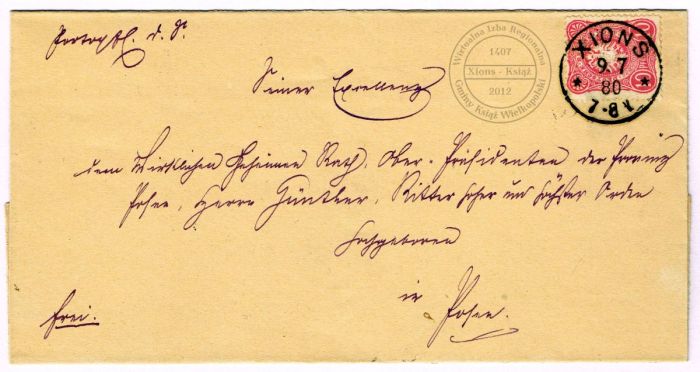 Portopfl. d. S.
Seiner Excellenz
dem Wirklichen Geheimen Rath, Ober-Präsidenten der Provinz
Posen, Herrn Günther, Ritter hoher und höchster Orden
Hochgeboren
in Posen.
frei.
XIONS
9. 7
80
7-8 V.
Wirtualna Izba Regionalna
1407
Xions - Książ
2012
Gminy Książ Wielkopolski